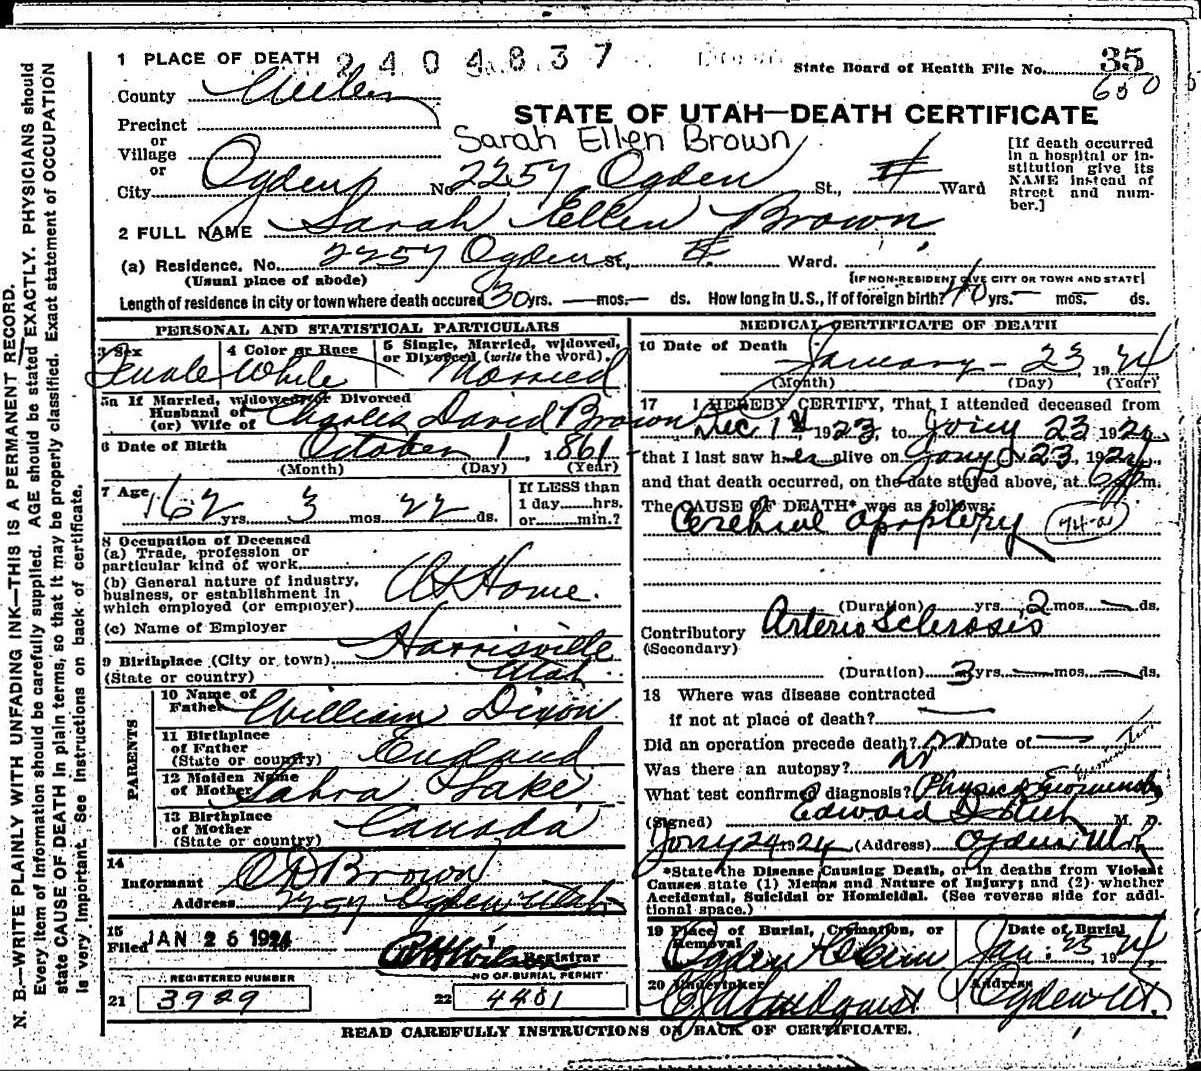 1 PLACE OF DEATH 2404837
State Board of Health File No. 35
650
County
STATE OF UTAH—DEATH CERTIFICATE
Precinct
or
Village
Sarah Ellen Brown
or
City Ogden No. 2257 Ogden St., 4 Ward
[If death occurred
in a hospital or in-
stitution give its
NAME instead of
street and num-
ber.]
2 FULL NAME Sarah Ellen Brown
(a) Residence. No. 2257 Ogden St., 4 Ward.
(Usual place of abode) [IF NON-RESIDENT GIVE CITY OR TOWN AND STATE]
Length of residence in city or town where death occured 30 yrs. — mos. — ds. How long in U.S., if of foreign birth? 40 yrs. — mos. — ds.
PERSONAL AND STATISTICAL PARTICULARS
3 Sex Female
4 Color or Race White
5 Single, Married, widowed,
or Divorced (write the word). Married
5a If Married, widowed or Divorced
Husband of
(or) Wife of Charles David Brown
6 Date of Birth October 1, 1861
(Month) (Day) (Year)
7 Age 62 yrs. 3 mos. 22 ds.
If LESS than
1 day......hrs.
or......min.?
8 Occupation of Deceased
(a) Trade, profession or
particular kind of work
(b) General nature of industry,
business, or establishment in
which employed (or employer) At Home.
(c) Name of Employer
9 Birthplace (City or town) Harrisville
(State or country) Utah
PARENTS
10 Name of
Father William Dixon
11 Birthplace
of Father
(State or country) England
12 Maiden Name
of Mother Sabra Lake
13 Birthplace
of Mother
(State or country) Canada
14
Informant C D Brown
Address 2257 Ogden Utah
15
Filed JAN 26 1924
Registrar
REGISTERED NUMBER
21 3929
NO OF BURIAL PERMIT
22 4401
MEDICAL CERTIFICATE OF DEATH
16 Date of Death January - 23 1924
(Month) (Day) (Year)
17 I HEREBY CERTIFY, That I attended deceased from
Dec 1st, 1923, to Jany 23 1924,
that I last saw her alive on Jany 23, 1924,
and that death occurred, on the date stated above, at m.
The CAUSE OF DEATH* was as follows:
Cerebral apoplexy 74-a
(Duration) yrs. 2 mos. — ds.
Contributory Arterio Sclerosis
(Secondary)
(Duration) 3 yrs. — mos. — ds.
18 Where was disease contracted
if not at place of death? —
Did an operation precede death? no Date of —
Was there an autopsy? no
What test confirmed diagnosis? Physical Examination
(Signed) Edward M. D.
Jany 24 1924 (Address) Ogden Utah
*State the Disease Causing Death, or in deaths from Violent
Causes state (1) Means and Nature of Injury; and (2) whether
Accidental, Suicidal or Homicidal. (See reverse side for addi-
tional space.)
19 Place of Burial, Cremation, or
Removal Ogden
Date of Burial
Jan. 25 1924
20 Undertaker
Address
Ogden Ut.
READ CAREFULLY INSTRUCTIONS ON BACK OF CERTIFICATE.
N. B.—WRITE PLAINLY WITH UNFADING INK—THIS IS A PERMANENT RECORD.
Every item of information should be carefully supplied. AGE should be stated EXACTLY. PHYSICIANS should
state CAUSE OF DEATH in plain terms, so that it may be properly classified. Exact statement of OCCUPATION
is very important. See instructions on back of certificate.